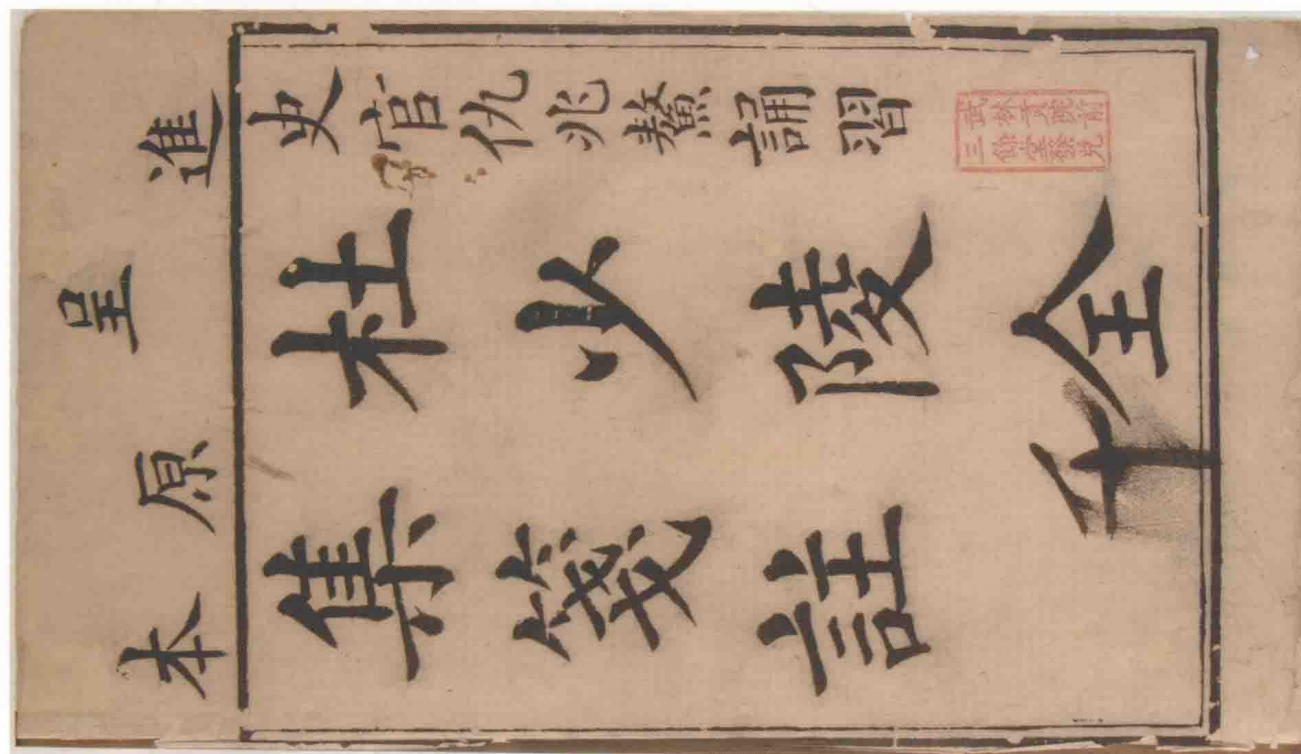 進呈原本
史官仇兆鰲誦習
杜少陵全
集箋註
三餘堂發兌